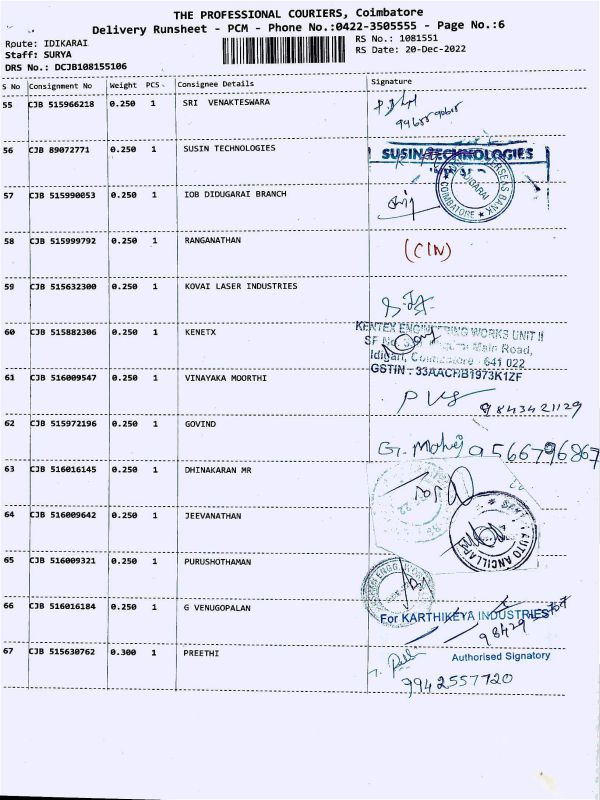 THE PROFESSIONAL COURIERS, Coimbatore
Delivery Runsheet - PCM - Phone No.:0422-3505555 - Page No.:6
Rpute: IDIKARAI
RS No.: 1081551
Staff: SURYA
RS Date: 20-Dec-2022
DRS No.: DCJB108155106
S No Consignment No Weight PCS Consignee Details Signature
55 CJB 515966218 0.250 1 SRI VENAKTESWARA
56 CJB 89072771 0.250 1 SUSIN TECHNOLOGIES
SUSIN TECHNOLOGIES
57 CJB 515990053 0.250 1 IOB DIDUGARAI BRANCH
OVERSEAS BANK
COIMBATORE
58 CJB 515999792 0.250 1 RANGANATHAN (CIN)
59 CJB 515632300 0.250 1 KOVAI LASER INDUSTRIES
60 CJB 515882306 0.250 1 KENETX
KENTEX ENGINEERING WORKS UNIT II
SF No. Main Road,
Idigari, Coimbatore - 641 022
GSTIN : 33AACHB1973K1ZF
61 CJB 516009547 0.250 1 VINAYAKA MOORTHI
9843421129
62 CJB 515972196 0.250 1 GOVIND
9566796867
63 CJB 516016145 0.250 1 DHINAKARAN MR
64 CJB 516009642 0.250 1 JEEVANATHAN
AUTO ANCILLARI
65 CJB 516009321 0.250 1 PURUSHOTHAMAN
66 CJB 516016184 0.250 1 G VENUGOPALAN
For KARTHIKEYA INDUSTRIES
67 CJB 515630762 0.300 1 PREETHI
Authorised Signatory
9942557720